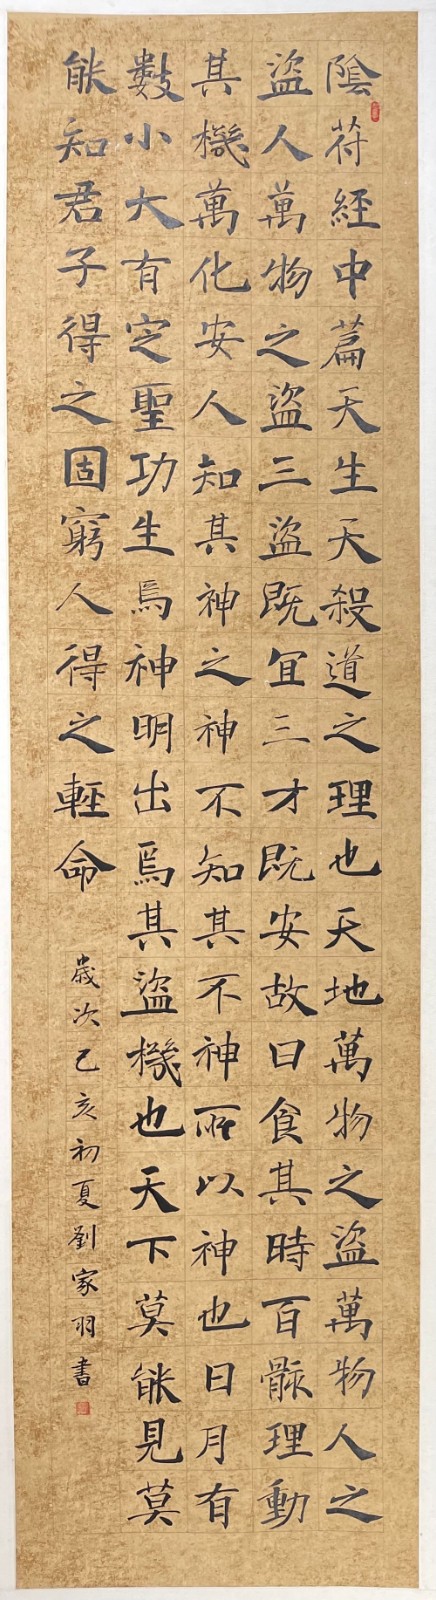 隂苻經中萹天生天殺道之理也天地萬物之盜萬物人之
盜人萬物之盜三盜既宜三才既安故曰食其時百骸理動
其機萬化安人知其神之神不知其不神所以神也日月有
數小大有定聖功生焉神明出焉其盜機也天下莫能見莫
能知君子得之固窮人得之輕命
歲次己亥初夏劉家羽書